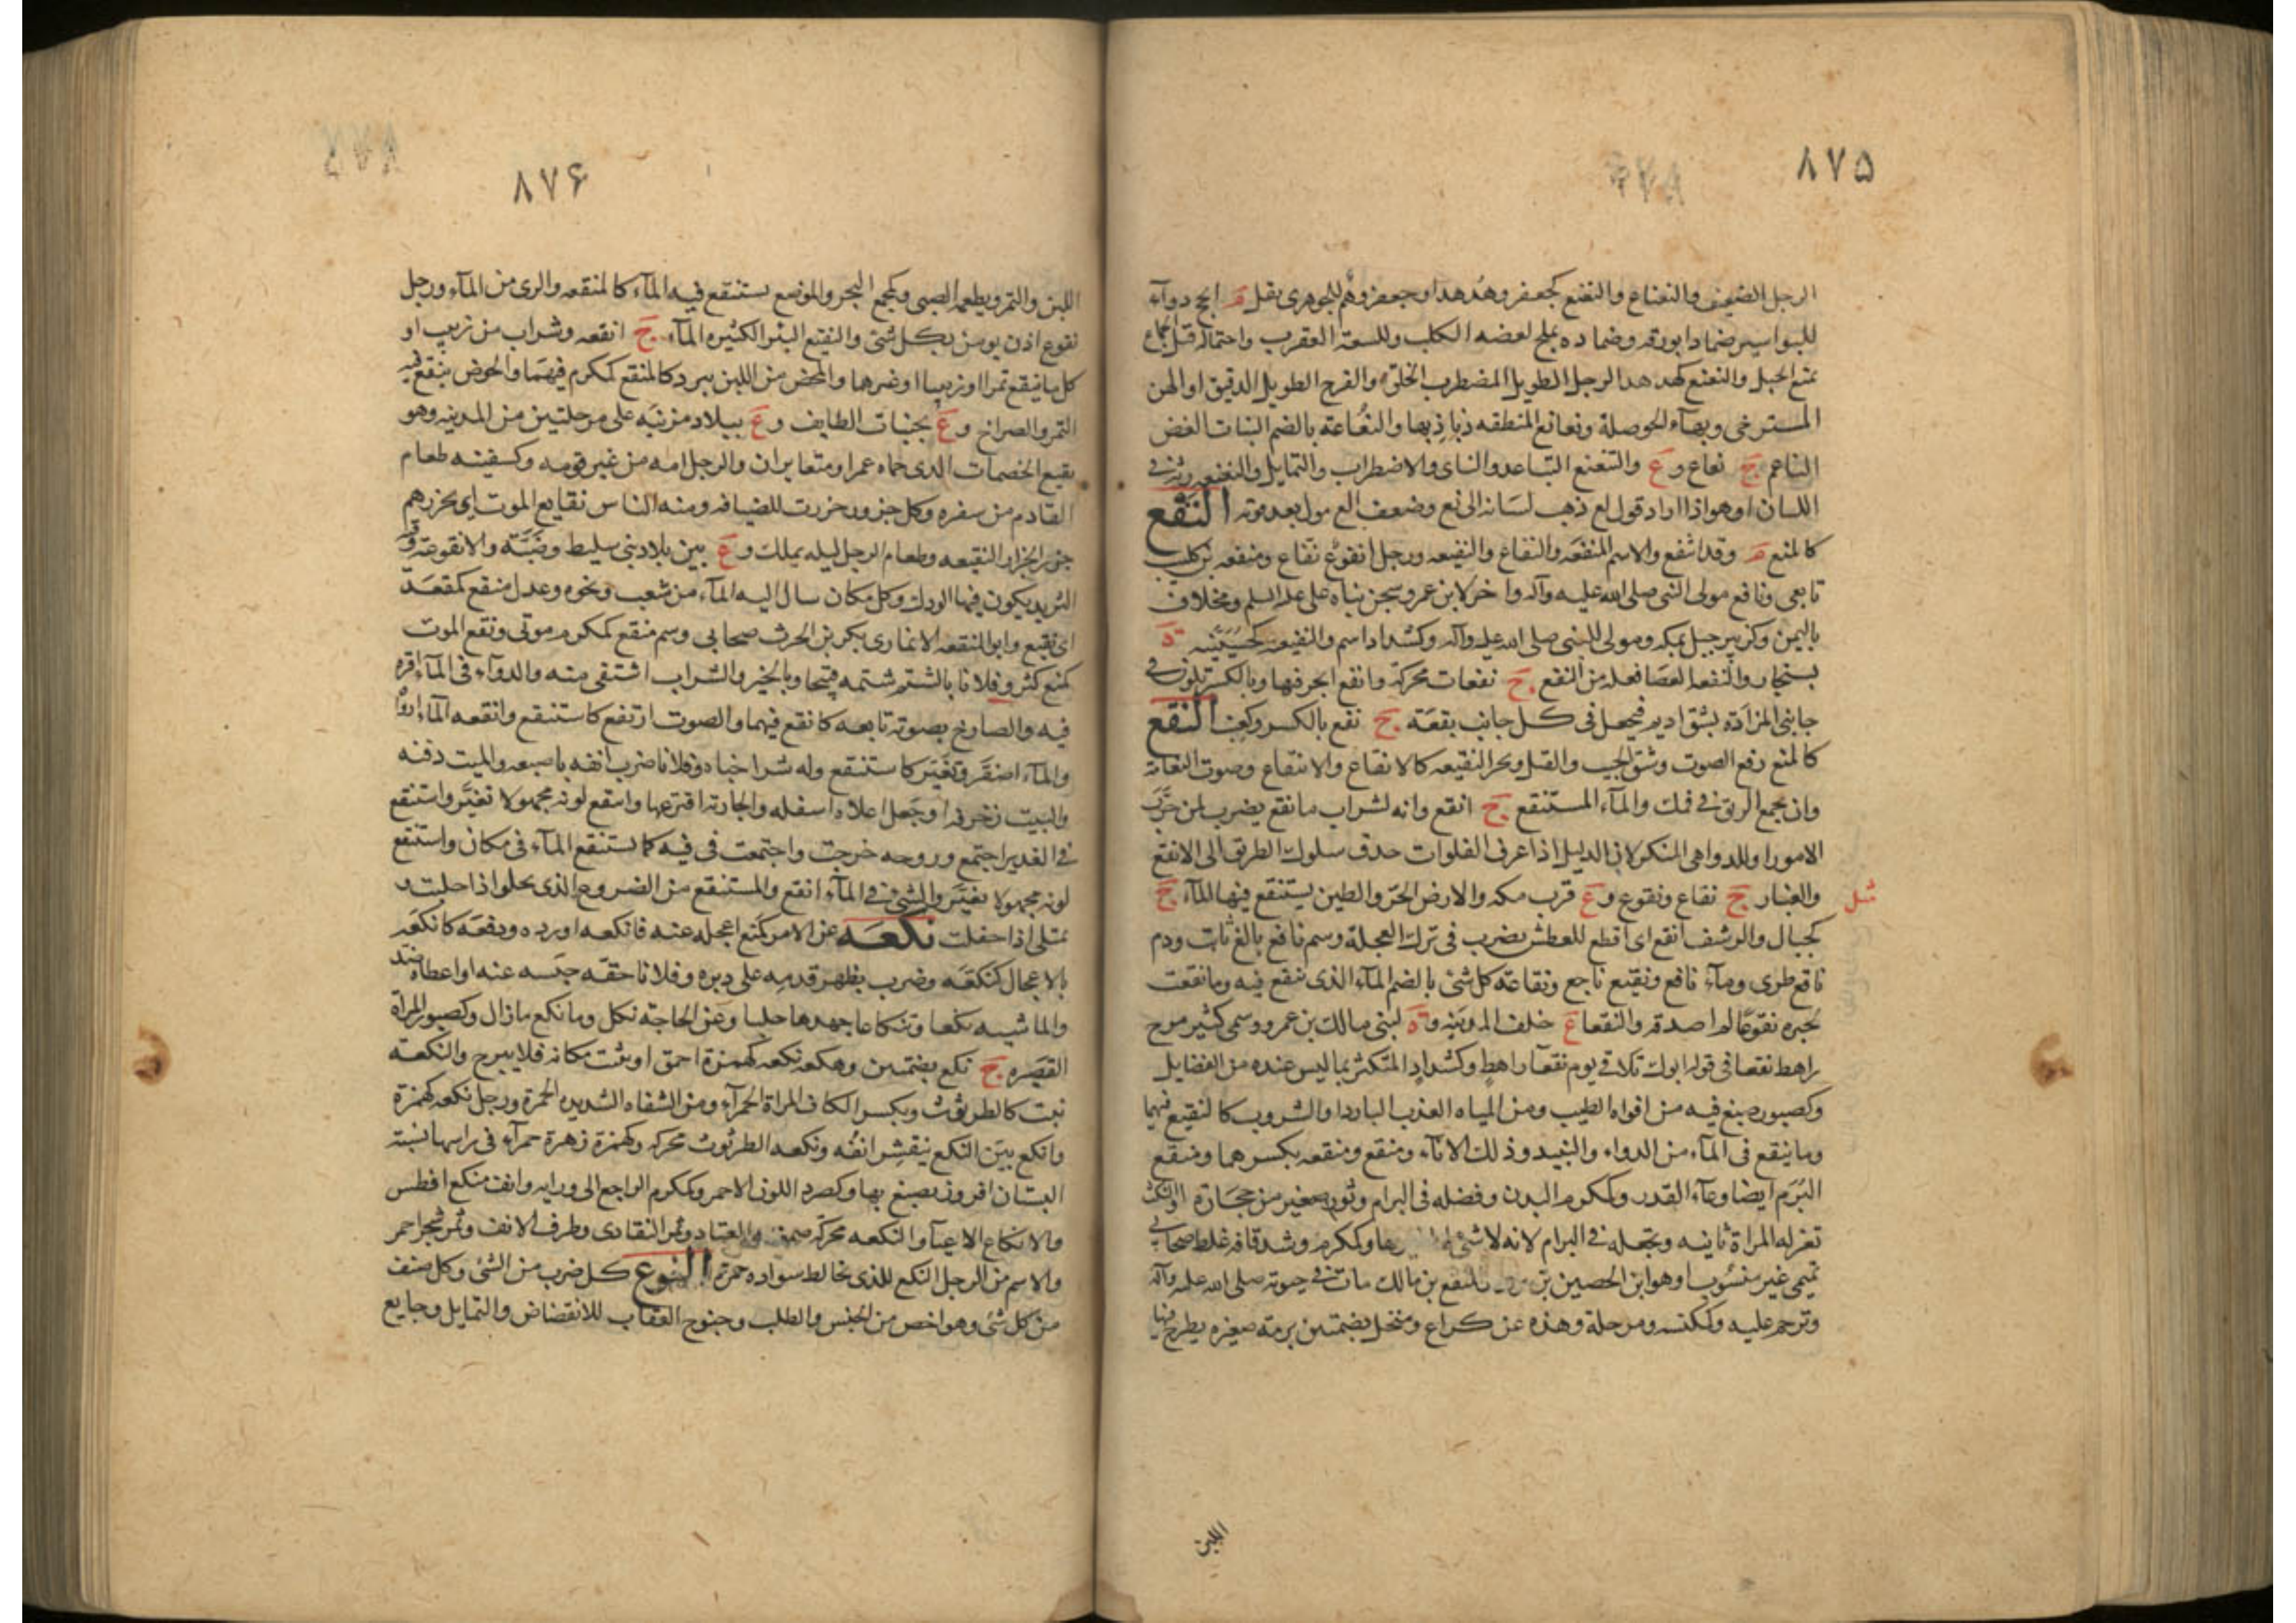 ٨٧۵
الرجل الضعيف والنعناع والنعنع كجعفر وهدهد او جعفر وهم للجوهرى بقل م انجح دوآء
للبواسير ضمادا بورقه وضماده بملح لعضه الكلب وللسعة العقرب واحتماله قبل الجماع
يمنع الحبل والنعنع كهدهد الرجل الطويل المضطرب الخلق والفرج الطويل الدقيق او الهن
المسترخى وبهآء الحوصلة ونعانع المنطقه ذباذبها والنعاعة بالضم النبات الغض
الناعم ج نعاع و ع والتنعنع التباعد والناى والاضطراب والتمايل والنعنعه رتة فى
اللسان او هو اذا اراد قول لع ذهب لسانه الى نع وضعف الع مول بعد قوته النفع
كالمنع م وقد انتفع والاسم المنفعه والنفاع والنفيعه ورجل نفوع نفاع ومنفعه بن كليب
تابعى ونافع مولى النبى صلى الله عليه وآله واخر لابن عمر وسجن بناه على عليه السلم ومخلاف
باليمن وكزبير جبل بمكه ومولى للنبى صلى الله عليه وآله وكشداد اسم والنفيعيه كحسينيه ة
بسنجار والنفعه العصا فعله من النفع ج نفعات محركة وانفع اتجر فيها وبالكسر تكون فى
جانبى المزادة يشق اديم فيجعل فى كل جانب نفعة ج نفع بالكسر وكعنب النقع
كالمنع رفع الصوت وشق الجيب والقتل ونحر النقيعه كالانقاع والانتقاع وصوت النعامه
وان يجمع الريق فى فمك والمآء المستنقع ج انقع وانه لشراب بانقع يضرب لمن جرب
الامور او للدواهى المنكر لان الدليل اذا عرف الفلوات حذق سلوك الطرق الى الانقع
والغبار ج نقاع ونقوع و ع قرب مكه والارض الحر والطين يستنقع فيها المآء ج
كجبال والرشف انقع اى اقطع للعطش يضرب فى ترك العجلة وسم ناقع بالغ ثابت ودم
ناقع طرى ومآء ناقع ونقيع ناجع ونقاعة كل شئ بالضم المآء الذى ينقع فيه وما نقعت
بخبره نقوعا لم اصدقه والنقعا ع خلف المدينه و ة لبنى مالك بن عمرو وسمى كثير مرج
راهط نقعا فى قوله ابوك تلاقى يوم نقعآء راهط وكشداد المتكثر بما ليس عنده من الفضايل
وكصبور صبغ فيه من افواه الطيب ومن المياه العذب البارد او الشروب كالنقيع فيهما
وما ينقع فى المآء من الدواء والنبيذ وذلك الانآء ومنقع ومنقعه بكسرهما ومنقع
البرم ايضا وعآء القدر وكمكرم البدن وفضله فى البرام وتور صغير من حجارة او النكث
تغزله المراة ثانيه وتجعله فى البرام لانه لا شئ لها غيرها وكمكرم وشد قافه غلط صحابى
تميمى غير منسوب او هو ابن الحصين بن يزيد ومنقع بن مالك مات فى حيوته صلى الله عليه وآله
وترحم عليه وكمكنسه ومرحلة وهذه عن كراع ومنخل بضمتين برمة صغيره يطرح فيها
شل
اللبن
٨٧۶
اللبن والتمر ويطعمه الصبى وكمجمع البحر والموضع يستنقع فيه المآء كالمنقعه والرى من المآء ورجل
نقوع اذن يومن بكل شئ والنقيع البئر الكثيره المآء ج انقعه وشراب من زبيب او
كل ما ينقع تمرا او زبيبا او غيرها والمحض من اللبن يبرد كالمنقع كمكرم فيهما والحوض ينقع فيه
التمر والصراخ و ع بجنبات الطايف و ع ببلاد مزنيه على مرحلتين من المدينه وهو
نقيع الخضمات الذى حماه عمر او متغايران والرجل امه من غير قومه وكسفينه طعام
القادم من سفره وكل جزور جزرت للضيافه ومنه الناس نقايع الموت اى يجزرهم
جزر الجزار النقيعه وطعام الرجل ليله يملك و ع بين بلاد بنى سليط وضبة والانقوعة وقبة
الثريد يكون فيها الودك وكل مكان سال اليه المآء من شعب ونحوه وعدل منقع كمقعد
اى مقنع وابو المنقعه الانمارى بكر بن الحرث صحابى وسم منقع كمكرم موتى ونقع الموت
كمنع كثر وفلانا بالشتم شتمه قبيحا وبالخبر والشراب اشتفى منه والدوآء فى المآء اقره
فيه والصارخ بصوته تابعه كانقع فيهما والصوت ارتفع كاستنقع وانقعه المآء ارواه
والمآء اصفر وتغير كاستنقع وله شرا خباه وفلانا ضرب انفه باصبعه والميت دفنه
والبيت زخرفه او جعل اعلاه اسفله والجاريه افترعها وانتقع لونه مجهولا تغير واستنقع
فى الغدير اجتمع وروحه خرجت واجتمعت فى فيه كما يستنقع المآء فى مكان واستنقع
لونه مجهولا تغير والشئ فى المآء انقع والمستنقع من الضروع الذى يخلو اذا حلبت و
يمتلى اذا حفلت نكعه عن الامر كمنع اعجله عنه فانكعه اورده ودفعه كانكعه
بالاعجال كنكعه وضرب بظهر قدمه على دبره وفلانا حقه حبسه عنه او اعطاه ضد
والماشيه نكعا وتنكاعا جهدها حلبا وعن الحاجة نكل وما نكع ما زال وكصبور المراة
القصيره ج نكع بضمتين وهكعه نكعه كهمزة احمق او يثبت مكانه فلا يبرح والنكعة
نبت كالطرثوث وبكسر الكاف المراة الحمرآء ومن الشفاه الشديده الحمرة ورجل نكعه كهمزة
وانكع بين النكع ينقشر انفه ونكعه الطرثوث محركه وكهمزة زهرة حمرآء فى راسها نبتة
البستان افروز يصبغ بها وكصرد اللون الاحمر وكمكرم الراجع الى ورايه وانف منكع افطس
والانكاع الاعيآء والنكعه محركة صمغ القتاد وثمر النقاوى وطرف الانف وثمر شجر احمر
والاسم من الرجل النكع للذى يخالط سواده حمرة النوع كل ضرب من الشئ وكل صنف
من كل شئ وهو اخص من الجنس والطلب وجنوح العقاب للانقضاض والتمايل وجايع